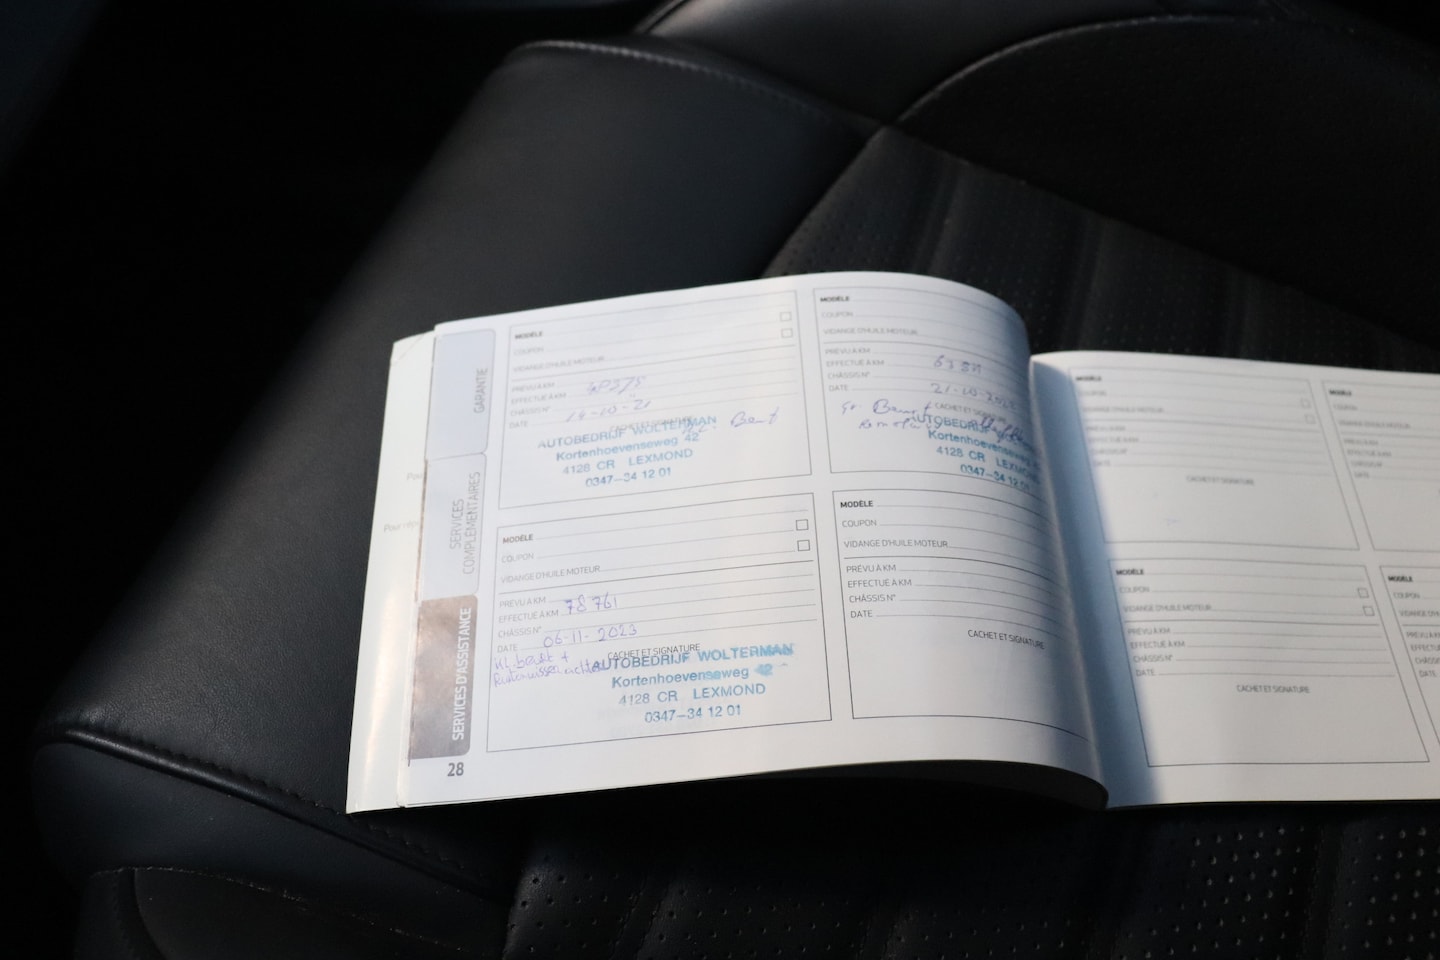 GARANTIE
SERVICES
COMPLÉMENTAIRES
SERVICES D'ASSISTANCE
28
Pour
MODÈLE
COUPON
VIDANGE D'HUILE MOTEUR
PRÉVU À KM
EFFECTUÉ À KM
CHÂSSIS N°
DATE 14-10-21
CACHET ET SIGNATURE
AUTOBEDRIJF WOLTERMAN
Kortenhoevenseweg 42
4128 CR LEXMOND
0347-34 12 01
MODÈLE
COUPON
VIDANGE D'HUILE MOTEUR
PRÉVU À KM
EFFECTUÉ À KM
CHÂSSIS N°
DATE 21-10-2022
CACHET ET SIGNATURE
AUTOBEDRIJF
Kortenhoevenseweg
4128 CR LEXMOND
0347-34 12 01
MODÈLE
COUPON
VIDANGE D'HUILE MOTEUR
PRÉVU À KM
EFFECTUÉ À KM 78 761
CHÂSSIS N°
DATE 06-11-2023
CACHET ET SIGNATURE
AUTOBEDRIJF WOLTERMAN
Kortenhoevenseweg 42
4128 CR LEXMOND
0347-34 12 01
MODÈLE
COUPON
VIDANGE D'HUILE MOTEUR
PRÉVU À KM
EFFECTUÉ À KM
CHÂSSIS N°
DATE
CACHET ET SIGNATURE
MODÈLE
COUPON
VIDANGE D'HUILE MOTEUR
PRÉVU À KM
EFFECTUÉ À KM
CHÂSSIS N°
DATE
CACHET ET SIGNATURE
MODÈLE
COUPON
VIDANGE D'HUILE
PRÉVU À KM
EFFECTUÉ À KM
CHÂSSIS N°
DATE
MODÈLE
COUPON
VIDANGE D'HUILE MOTEUR
PRÉVU À KM
EFFECTUÉ À KM
CHÂSSIS N°
DATE
CACHET ET SIGNATURE
MODÈLE
COUPON